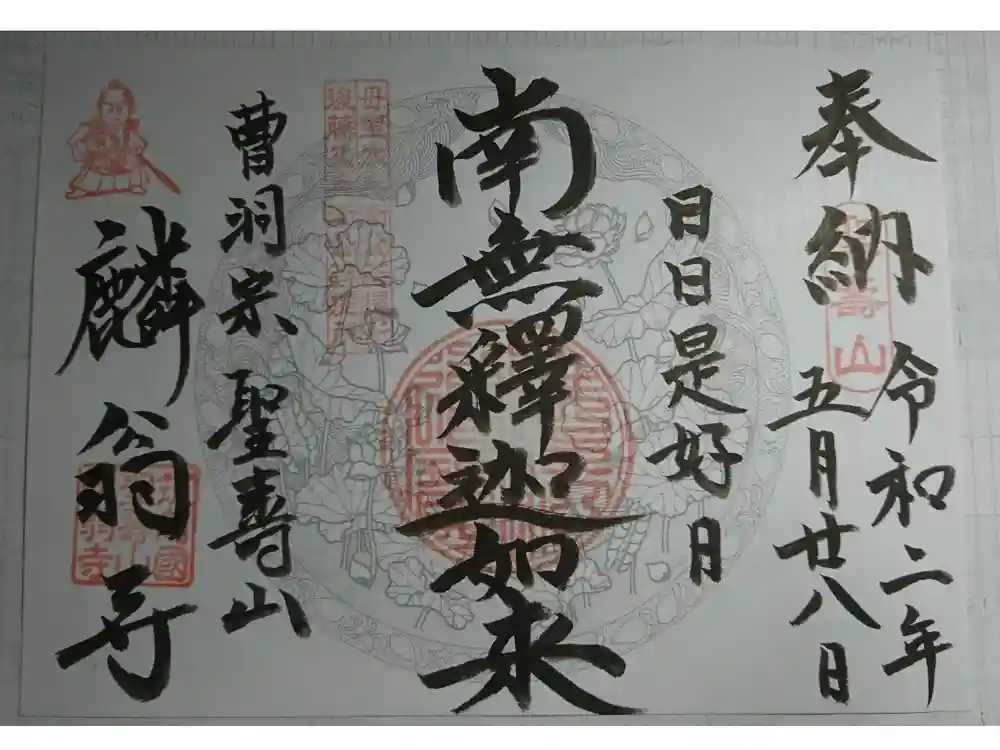 奉納
令和二年
五月廿八日
壽山
日日是好日
南無釋迦如来
曹洞宗 聖壽山
麟翁寺